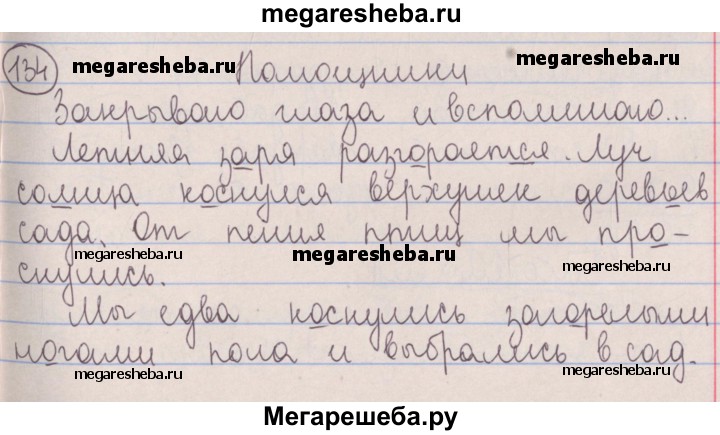 megaresheba.ru
134 megaresheba.ru Помощники megaresheba.ru
Закрываю глаза и вспоминаю...
Летняя заря разгорается. Луч
солнца коснулся верхушек деревьев
сада. От пения птиц мы про-
megaresheba.ru megaresheba.ru megaresheba.ru
снулись.
Мы едва коснулись загорелыми
ногами пола и выбрались в сад.
megaresheba.ru megaresheba.ru
Мегарешеба.ру